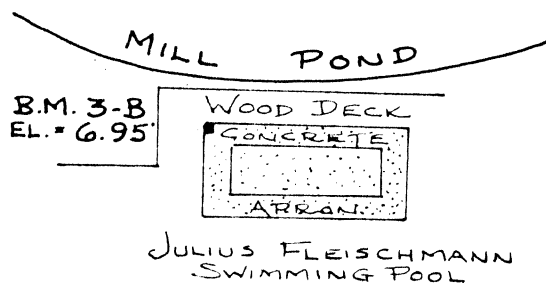 MILL POND
B.M. 3-B
EL. = 6.95'
WOOD DECK
CONCRETE
APRON
JULIUS FLEISCHMANN
SWIMMING POOL